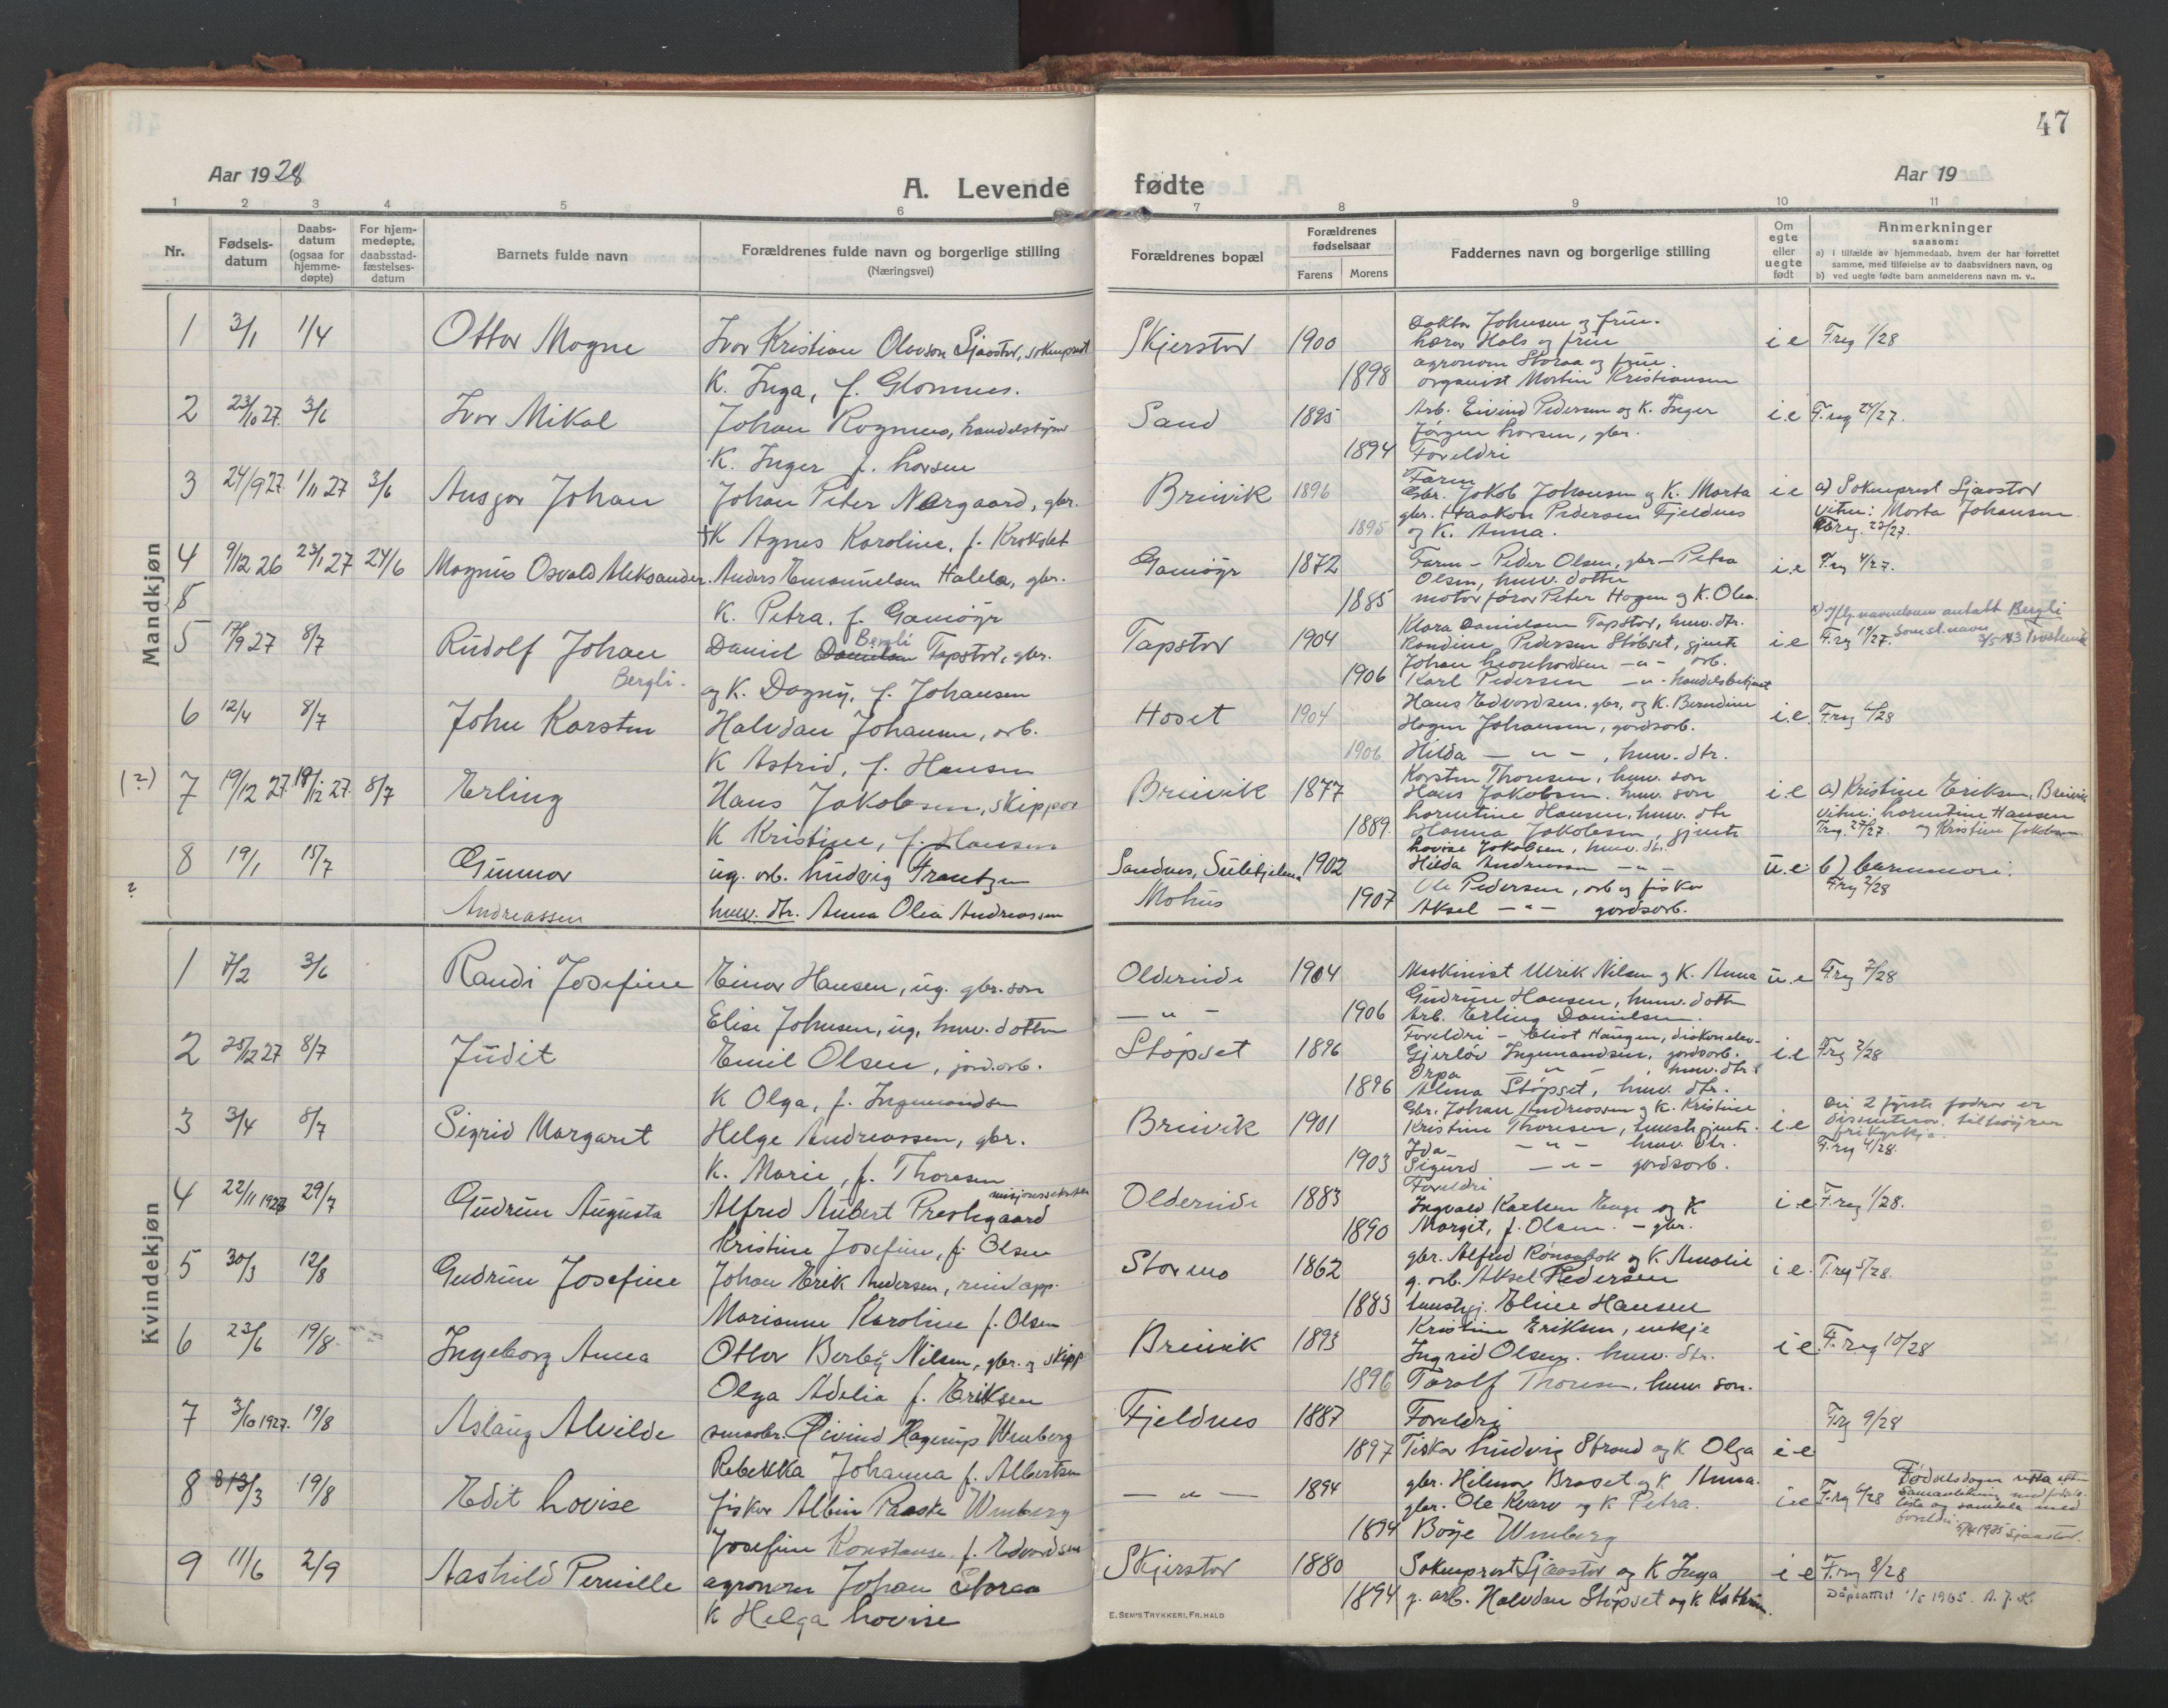 47
Aar 1928
A. Levende
fødte
Aar 19
1 2 3 4 5 6 7 8 9 10 11
Nr.
Fødsels-
datum
Daabs-
datum
(ogsaa for
hjemme-
døpte)
For hjem-
medøpte,
daabsstad-
fæstelses-
datum
Barnets fulde navn
Forældrenes fulde navn og borgerlige stilling
(Næringsvei)
Forældrenes bopæl
Forældrenes
fødselsaar
Farens
Morens
Faddernes navn og borgerlige stilling
Om
egte
eller
uegte
født
Anmerkninger
saasom:
a) i tilfælde av hjemmedaab, hvem der har forrettet
samme, med tilføielse av to daabsvidners navn, og
b) ved uegte fødte barn anmelderens navn m. v..
Mandkjøn
1 3/1 1/4 Ottar Magne Ivar Kristian Olavson Sjaastad, sokneprest Skjerstad 1900 Doktor Johnsen og frue. i e F.reg 1/28
Lærer Hals og frue
K. Inga, f. Glomnes. 1898 agronom Storaa og frue.
organist Martin Kristiansen
2 23/10 27. 3/6 Ivar Mikal Johan Rognnes, handelsstyrer Sand 1895 Arb. Eivind Pedersen og K. Inger i.e F.reg 24/27.
Jørgen Larsen, gbr.
K. Inger f. Larsen 1894 Foreldri
3 24/9 27. 1/11 27 3/6 Ansgar Johan Johan Peter Nergaard, gbr. Breivik 1896 Faren
Gbr. Jakob Johansen og K. Marta i e a) Sokneprest Sjaastad
gbr. Haakon Pedersen Fjeldnes vitne: Marta Johansen
K Agnes Karoline, f. Krokslet 1895 og K. Anna. F.reg. 23/27.
4 9/12 26 23/1 27 24/6 Magnus Osvald Aleksander. Anders Emanuelsen Halela, gbr. Gamøyr 1872 Faren - Peder Olsen, gbr - Petra i.e F.reg 4/27.
Olsen, heim. dotter
K. Petra, f. Gamøyr 1885 motorfører Peter Hagen og K. Olea.
5
5 17/9 27 8/7 Rudolf Johan Daniel Danielsen Bergli Tapstad, gbr. Tapstad 1904 Klara Danielsen Tapstad, heim. dtr.
Bergli. Randine Pedersen Støbset, gjente i e F.reg 19/27.
Johan Leonhardsen - " - arb.
og K. Dagny, f. Johansen 1906 Karl Pedersen - " - handelsbetjent
x) Iflg. navnebevis antatt Bergli som sl. navn
6 12/4 8/7 John Karsten Halvdan Johansen, arb. Hoset 1904 Hans Edvardsen, gbr, og K. Berndine i.e. F.reg 6/28
Hagen Johansen, gardsarb.
K Astrid, f. Hansen 1906 Hilda - " - , heim. dtr.
(?) 7 19/12 27 19/12 27. 8/7 Erling Hans Jakobsen, skipper Breivik 1877 Karsten Thoresen, heim. son
Hans Jakobsen. heim. son i.e a) Kristine Eriksen, Breivik
K Kristine, f. Hansen 1889. Larentine Hansen, heim. dtr vitne: Larentine Hansen
Hanna Jakobsen, gjente F.reg. 27/27. og Kristine Jakobsen
Lovise Jakobsen, heim. dtr.
? 8 19/1 15/7 Gunnar ug. arb. Ludvig Frantzen Sandnes, Sulitjelma 1902 Hilda Andreassen - " - u.e b) barnemori.
Andreassen heim. dtr. Anna Olea Andreassen Mohus 1907 Ole Pedersen, arb og fisker F.reg 2/28
Aksel - " - gardsarb.
Kvindekjøn
1 7/2 3/6 Randi Josefine Einar Hansen, ug. gbr. son Oldereide 1904 Maskinist Ulrik Nilsen og K. Anna u.e F.reg 7/28
Gudrun Hansen, heim. dotter
Elise Johnsen, ug, heim. dotter - " - 1906 Arb. Erling Danielsen.
2 25/12 27 8/7 Judit Emil Olsen, jord.arb. Støpset 1896 Foreldri - Eliot Haugen, diskonelev-
Gjerløv Ingemandsen, gardsarb. i.e F.reg 2/28
Orpa - " - , heim. dtr.
K Olga, f. Ingemandsen 1896 Alma Støpset, heim. dtr.
3 3/4 8/7 Sigrid Margaret Helge Andreassen, gbr. Breivik 1901 Gbr. Johan Andreassen og K. Kristine Dei 2 fyrste fadrar er
Kristine Thoresen, husgjente. i e dissenterar, tilhøyrer
frikyrkja.
Ida - " - heim. dtr. F.reg 4/28.
K. Marie, f. Thoresen 1903 Sigurd - " - gardsarb.
4 22/11 1928 29/7 Gudrun Augusta Alfred Aubert Prestegaard misjonssekretær Oldereide 1883 Foreldri
Ingvald Karlsen Enge og K i e F.reg 1/28.
Kristine Josefine, f. Olsen 1890 Margit, f. Olsen. - gbr.
5 30/3 12/8 Gudrun Josefine Johan Erik Andersen, reindapp. Stormo 1862 gbr. Alfred og K Amalie i e. F.reg 5/28.
g. arb. Aksel Pedersen
Marianne Karoline f. Olsen 1883 hushgj. Eline Hansen
6 23/6 19/8 Ingeborg Anna Ottar Berby Nilsen, gbr. og skipp Breivik 1893 Kristine Eriksen, enkje
Ingrid Olsen. heim. dtr. i e F.reg 10/28
Olga Adelia f. Eriksen 1896 Toralf Thoresen, heim. son.
7 3/10 1927. 19/8 Aslaug Alvilde smaabr. Øivind Hagerup Wenberg Fjeldnes 1887 Foreldri F.reg 9/28
Rebekka Johanna f. Albertsen 1897 Fisker Ludvig Strand og K. Olga i e
8 8 13/3 19/8 Edit Lovise fisker Albin Paaske Wenberg - " - 1894 gbr. Helmer Braset og K. Anna.
gbr. Ole Kvarv og K Petra. i.e F.reg 6/28
Josefine Konstanse f. Edvardsen 1894 Borje Wenberg
Fødselsdagen retta etter
samanlikning med fødsels-
lista og samtala med
foreldri. 5/4 1935 Sjaastad.
9 11/6 2/9 Aashild Pernille agronom Johan Storaa Skjerstad 1880 Sokneprest Sjaastad og K Inga i e F.reg 8/28
K Helga Lovise 1894 g. arb. Halvdan Støpset og K Kathrin. Dåpsattest 1/5 1965. A. J. K.
E. SEM'S TRYKKERI, FR. HALD